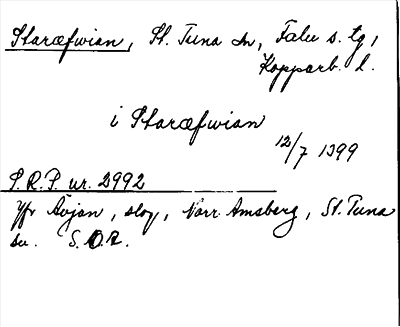 Staræfwian, St. Tuna sn, Falu s. tg,
Kopparb. l.
i Staræfwian
12/7 1399
S.R.P. nr. 2992
Jfr Avjan, skog, Norr Amsberg, St. Tuna
sn. S.O.Ä.